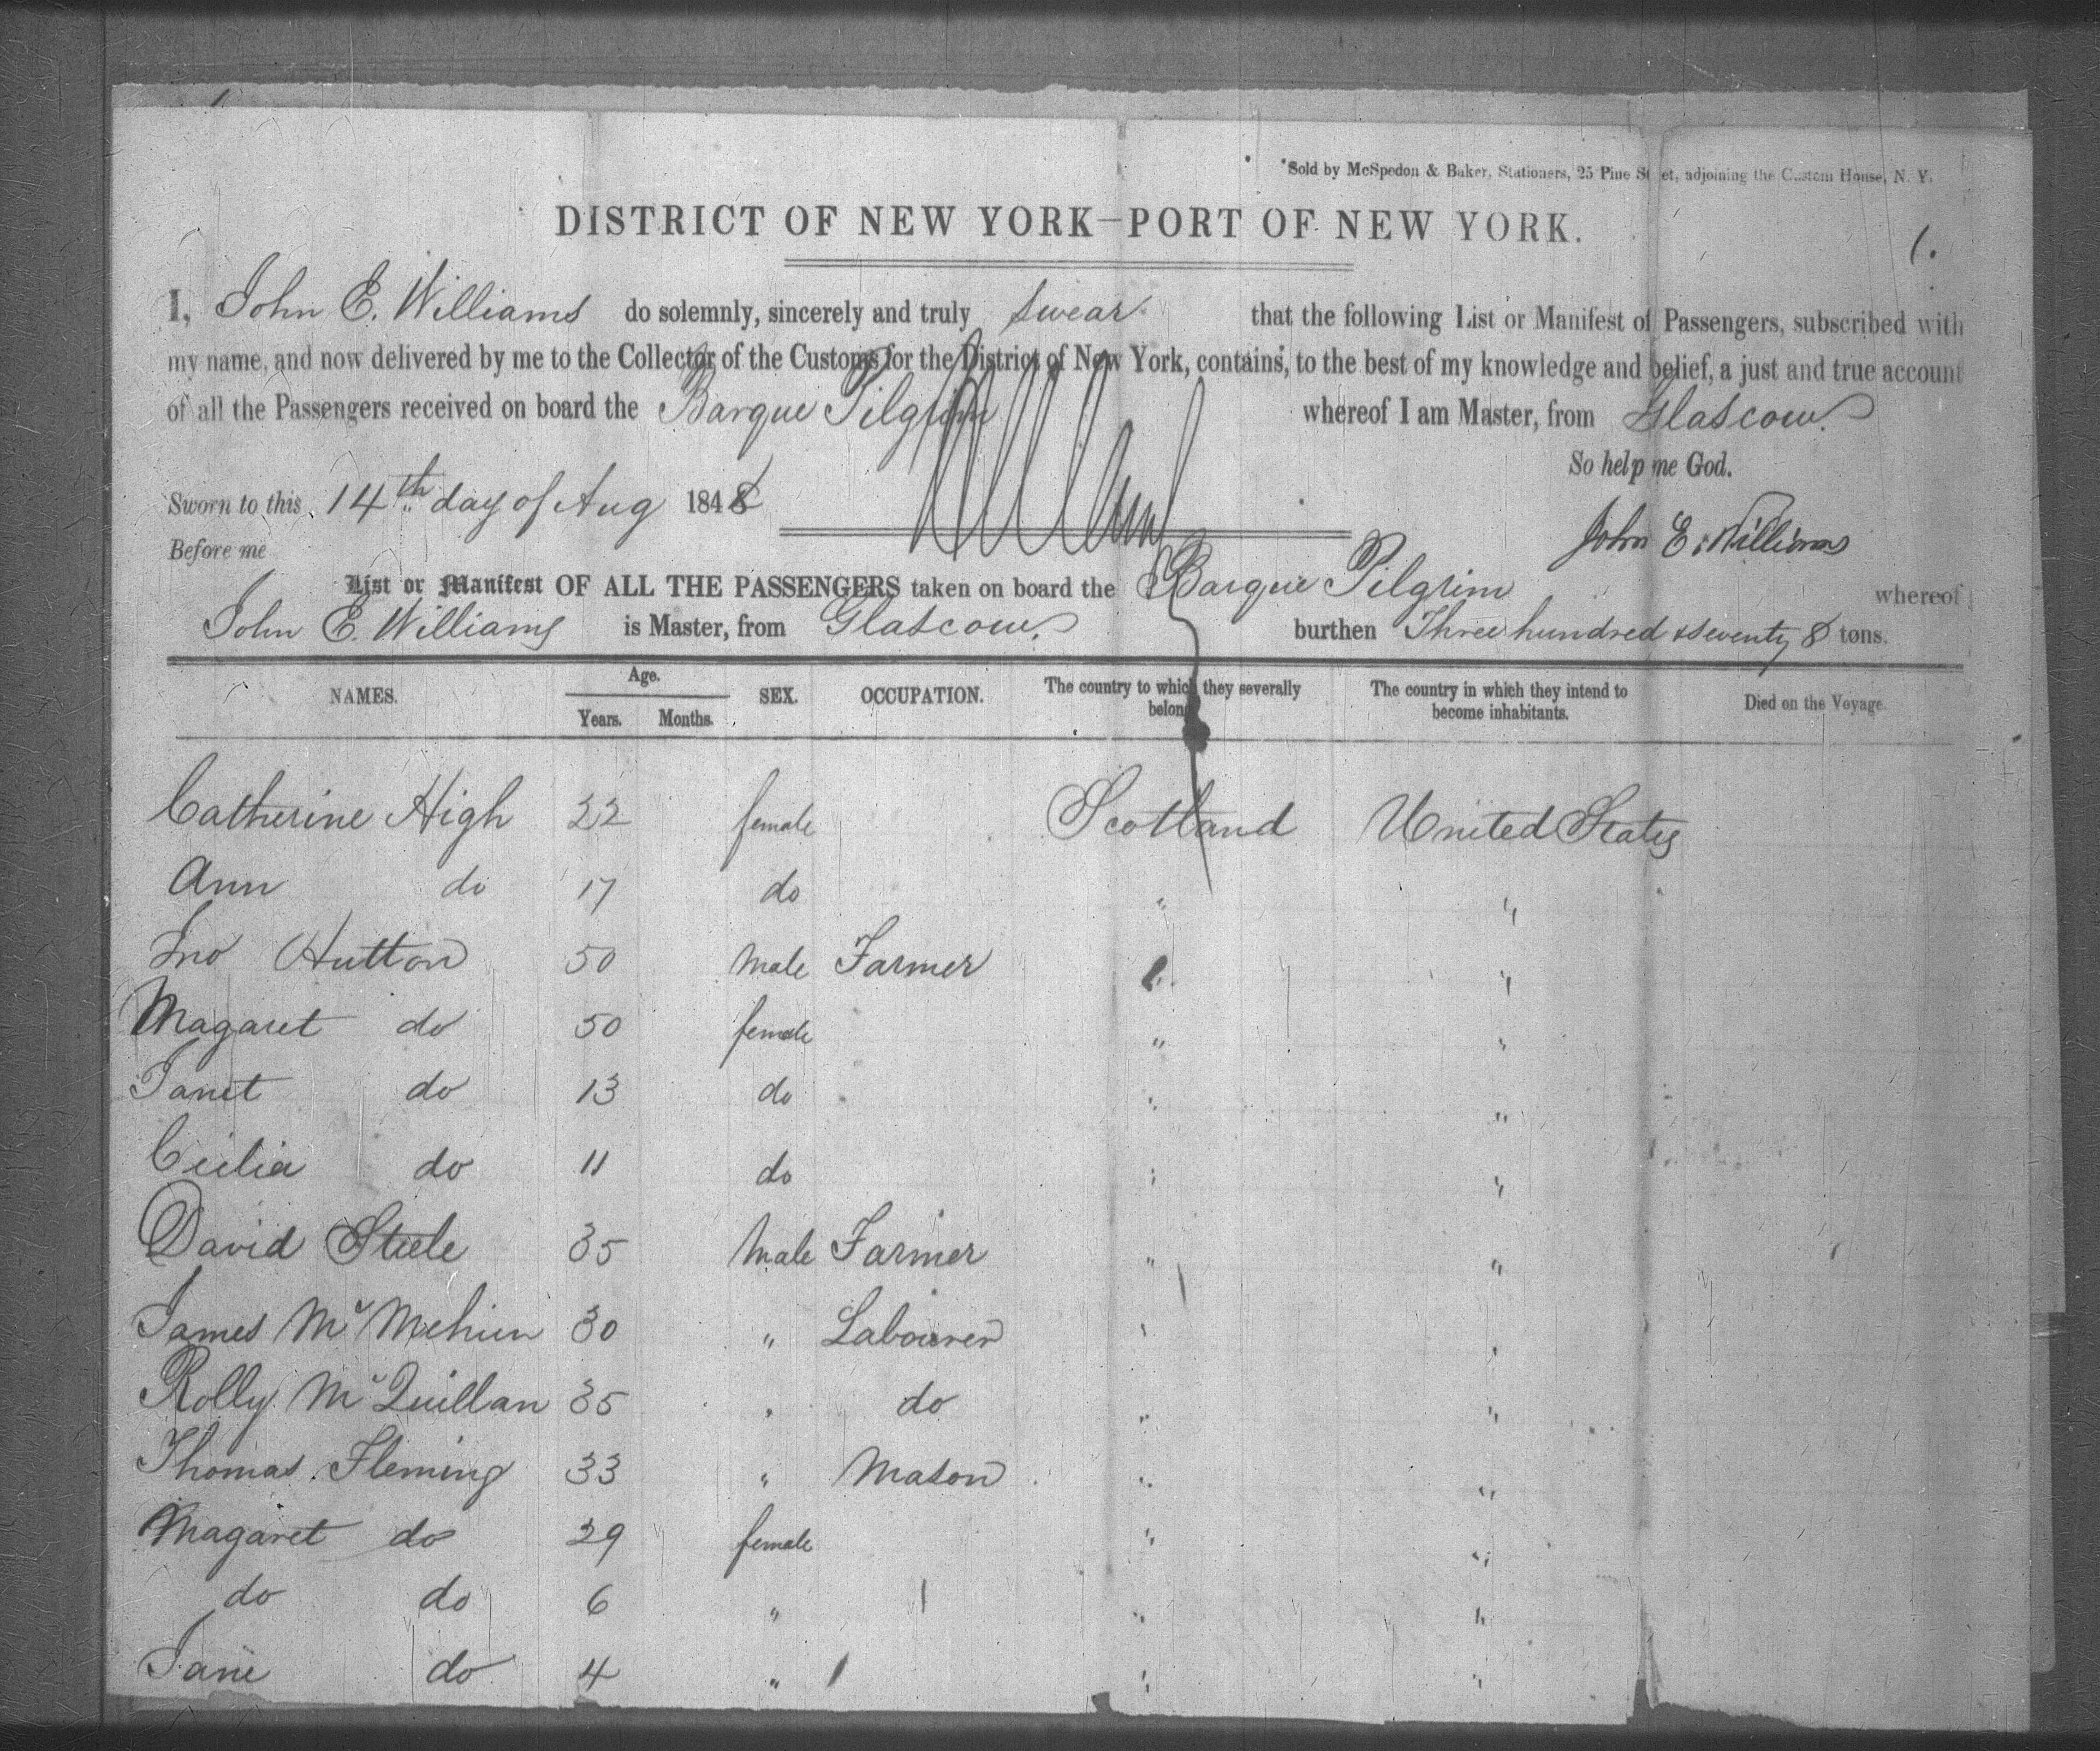 Sold by McSpedon & Baker, Stationers, 25 Pine Street, adjoining the Custom House, N. Y.
DISTRICT OF NEW YORK—PORT OF NEW YORK.
1.
I, John E. Williams do solemnly, sincerely and truly swear that the following List or Manifest of Passengers, subscribed with
my name, and now delivered by me to the Collector of the Customs for the District of New York, contains, to the best of my knowledge and belief, a just and true account
of all the Passengers received on board the Barque Pilgrim whereof I am Master, from Glascow.
So help me God.
Sworn to this 14th day of Aug 1848
John E. Williams
Before me
List or Manifest OF ALL THE PASSENGERS taken on board the Barque Pilgrim whereof
John E. Williams is Master, from Glascow. burthen Three hundred & seventy 8 tons.
NAMES. Age. Years. Months. SEX. OCCUPATION. The country to which they severally belong. The country in which they intend to become inhabitants. Died on the Voyage.
Catherine High 22 female Scotland United States
Ann do 17 do " "
Jno Hutton 50 Male Farmer " "
Magaret do 50 female " "
Janet do 13 do " "
Cicilia do 11 do " "
David Steele 35 Male Farmer " "
James Mc 30 " Labourer " "
Rolly McQuillan 35 " do " "
Thomas Fleming 33 " Mason " "
Magaret do 29 female " "
do do 6 " " "
Jane do 4 " " "